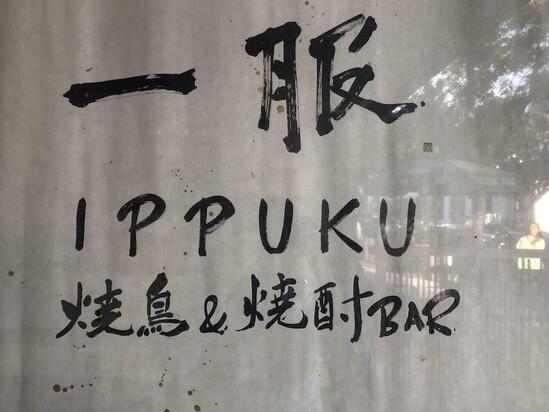 一服
IPPUKU
焼鳥&焼酎BAR